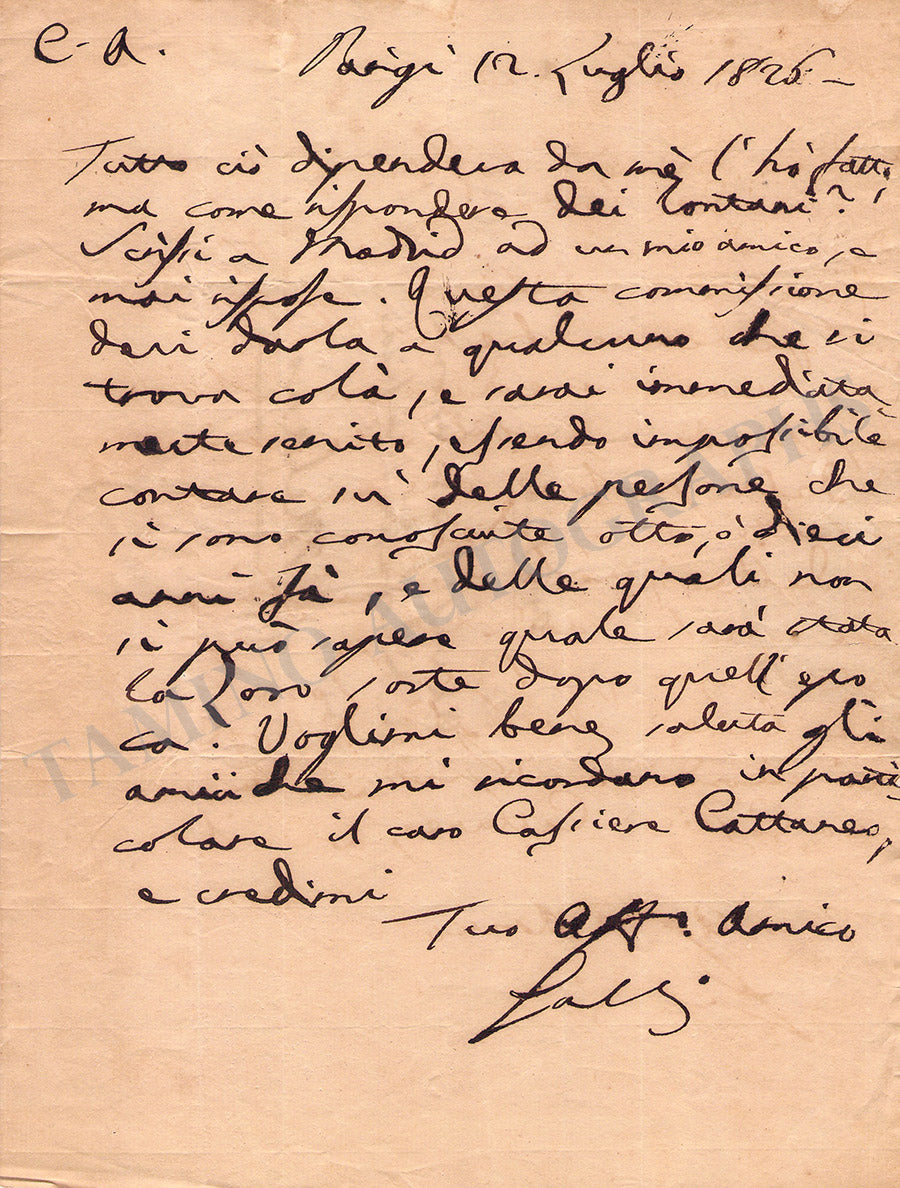 C. A.
Parigi 12. Luglio 1826 –
Tutto ciò dipendeva da mè l'hò fatto,
ma come rispondere dei lontani?
Scrissi a Madrid ad un mio amico, e
mai rispose. Questa commissione
devi darla a qualcuno che si
trova colà, e sarai immediata-
mente servito, essendo impossibile
contare sù delle persone che
si sono conosciute otto, ò dieci
anni fà, e delle quali non
si può sapere quale sarà stata
la loro sorte dopo quell'epo
ca. Voglimi bene, saluta gli
amici che mi ricordano in parti-
colare il caro Cassiere Cattaneo,
e credimi
Tuo Aff.o Amico
Galli
TAMINO AUTOGRAPHS